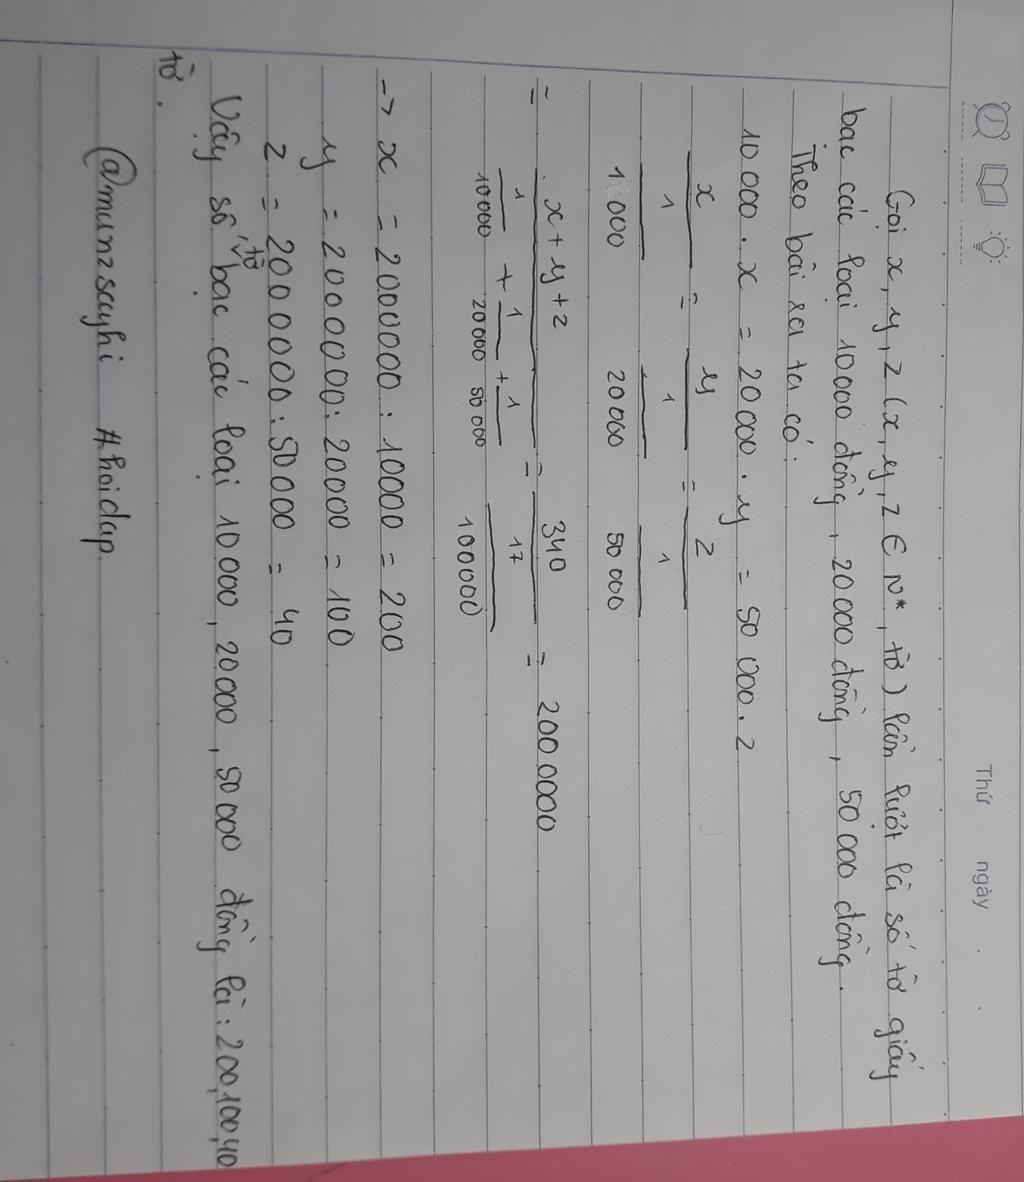 Thứ ngày . .
Gọi x, y, z (x, y, z ∈ N*, tờ) lần lượt là số tờ giấy
bạc các loại 10 000 đồng, 20 000 đồng, 50 000 đồng.
Theo bài ra ta có:
10 000 . x = 20 000 . y = 50 000 . z
x = y = z
1 1 1
1 000 20 000 50 000
= x + y + z = 340 = 200 0000
1 + 1 + 1 17
10000 20000 50 000 100000
-> x = 2000000 : 10000 = 200
y = 2000000 : 20000 = 100
z = 2000000 : 50000 = 40
Vậy số tờ bạc các loại 10 000, 20000, 50 000 đồng là: 200,100,40
tờ.
@munzsayhi #hoidap